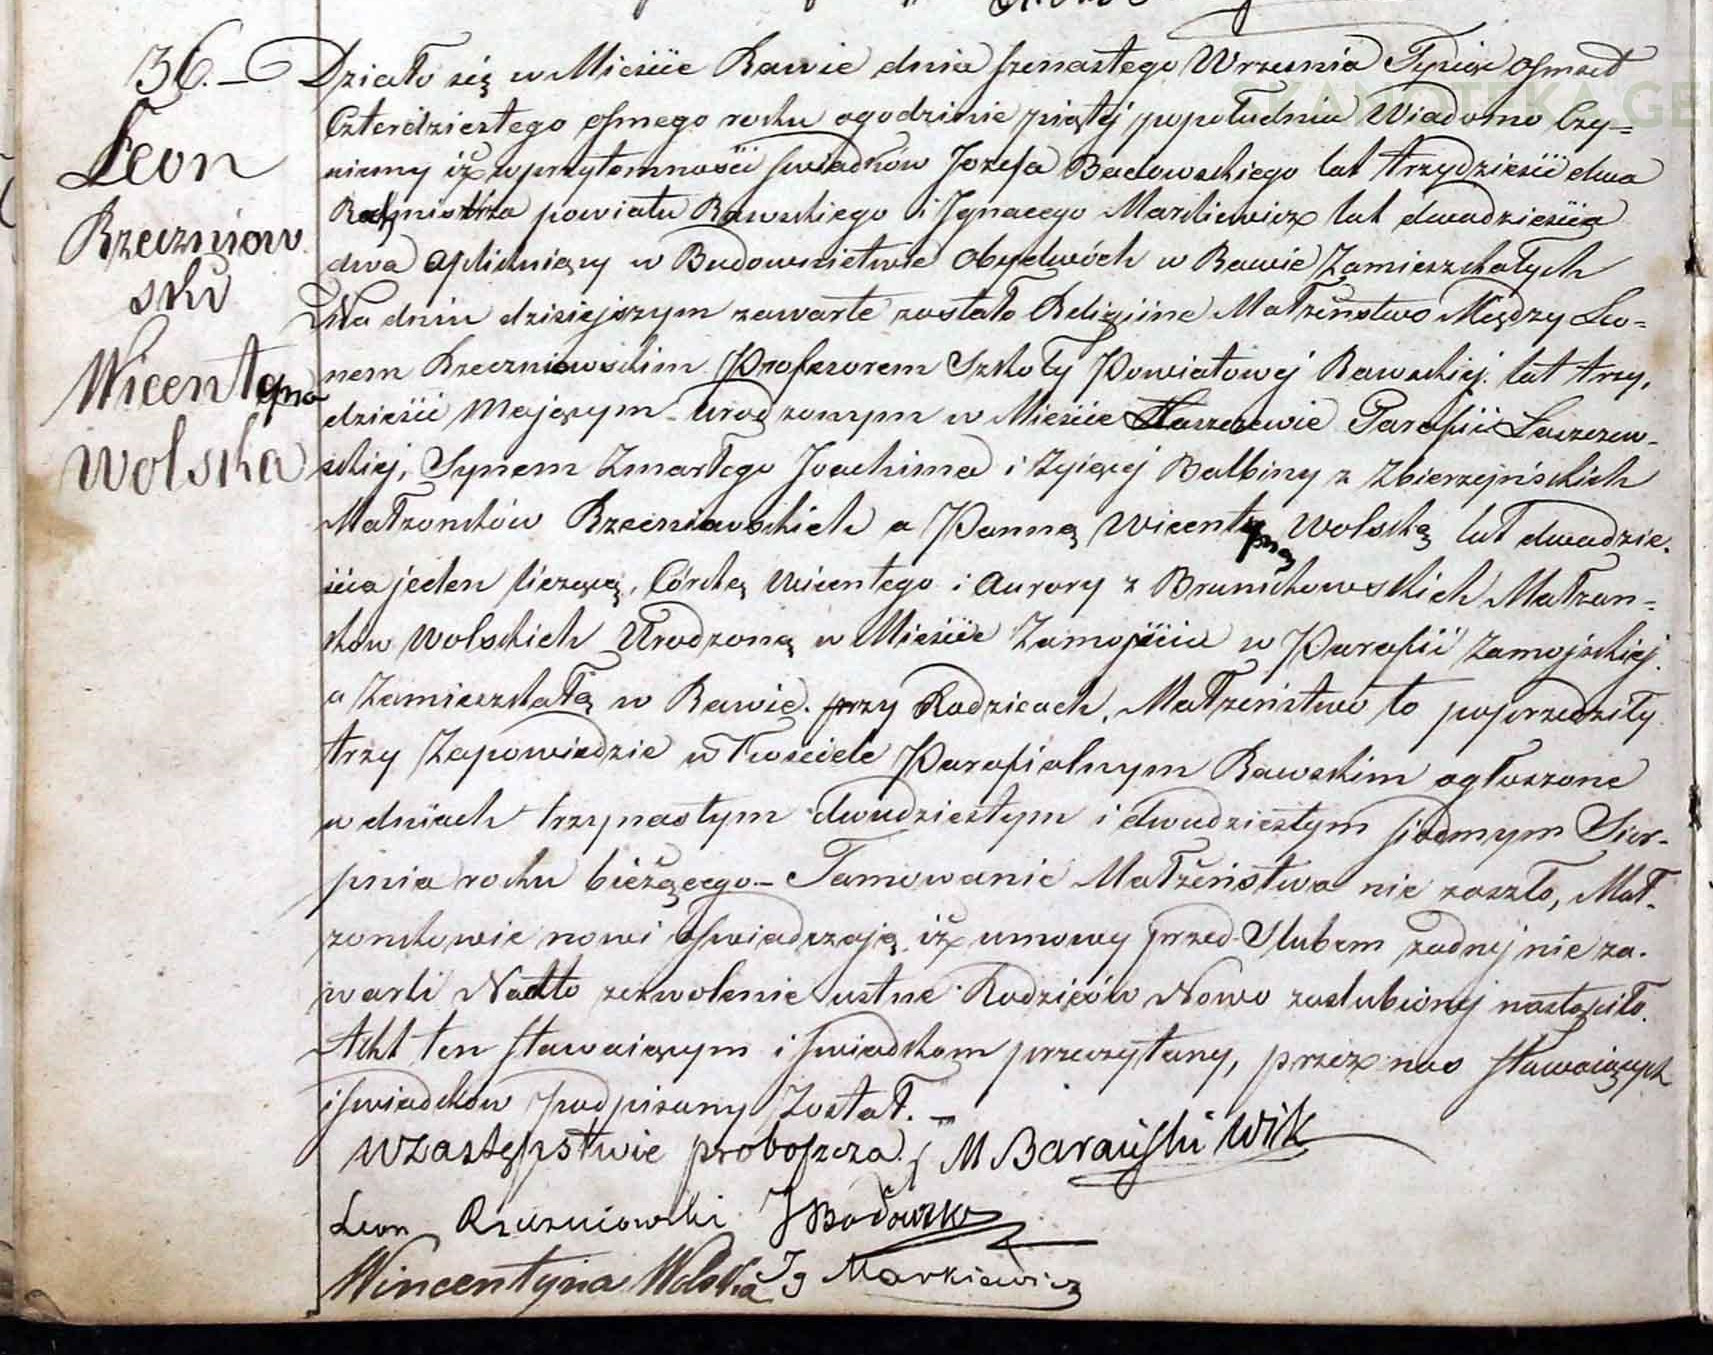 36. Działo się w Mieście Rawie dnia szesnastego Września Tysiąc ośmset
Leon
Rzeczniow
ski
Wicentyna
Wolska
Czterdziestego osmego roku o godzinie piątej popołudniu Wiadomo Czy=
niemy iż w przytomności swiadków Jozefa Badowskiego lat trzydzieści dwa
powiatu Rawskiego i Ignacego Markiewicz lat dwadzieścia
dwa aplikuiący w Budownictwie obydwóch w Rawie Zamieszkałych
Na dniu dzisiejszym zawarte zostało Religiine Małżeństwo Między Leo=
nem Rzeczniowskim Profesorem Szkoły Powiatowej Rawskiej lat trzy,
dzieści mającym urodzonym w Mieście Parafii
skiej, Synem Zmarłego Joachima i Żyiącej Balbiny z
Małzonków Rzeczniowskich a Panną Wicentyną Wolską lat dwadzie,
ścia jeden liczącą, Córką Wicentego i Aurory z Małzon=
ków Wolskich Urodzoną w Mieście Zamojściu w Parafii Zamojskiej
a Zamieszkałą w Rawie przy Rodzicach. Małżeństwo to poprzedziły
trzy Zapowiedzie w Kościele Parafialnym Rawskim ogłoszone
w dniach trzynastym dwudziestym i dwudziestym siodmym Sier-
pnia roku bieżącego - Tamowanie Małżeństwa nie zaszło, Mał-
zonkowie nowi oswiadczają iż umowy przed Slubem zadnej nie za-
warli Nadto zezwolenie ustne Rodziców Nowo zaslubionej nastąpiło.
Akt ten stawaiącym i swiadkom przeczytany, przez nas stawaiących
i swiadków podpisany Został. -
W zastępstwie proboszcza M Barański Wik
Leon Rzeczniowski J Badowski
Wincentyna Wolska Ig Markiewicz